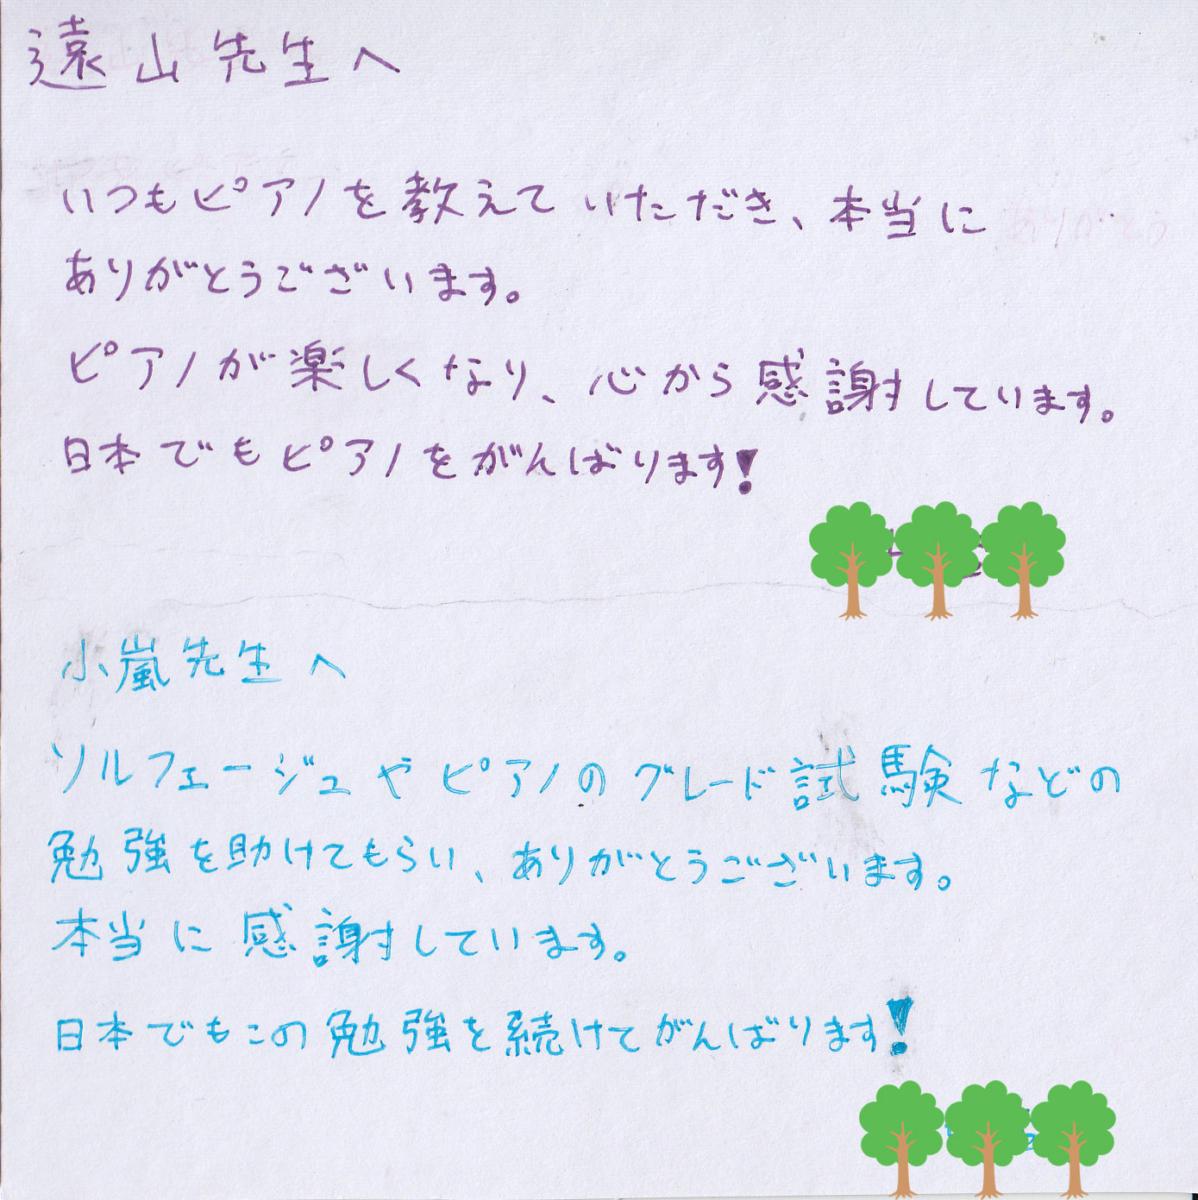 遠山先生へ
いつもピアノを教えていただき、本当に
ありがとうございます。
ピアノが楽しくなり、心から感謝しています。
日本でもピアノをがんばります!
小嵐先生へ
ソルフェージュやピアノのグレード試験などの
勉強を助けてもらい、ありがとうございます。
本当に感謝しています。
日本でもこの勉強を続けてがんばります!